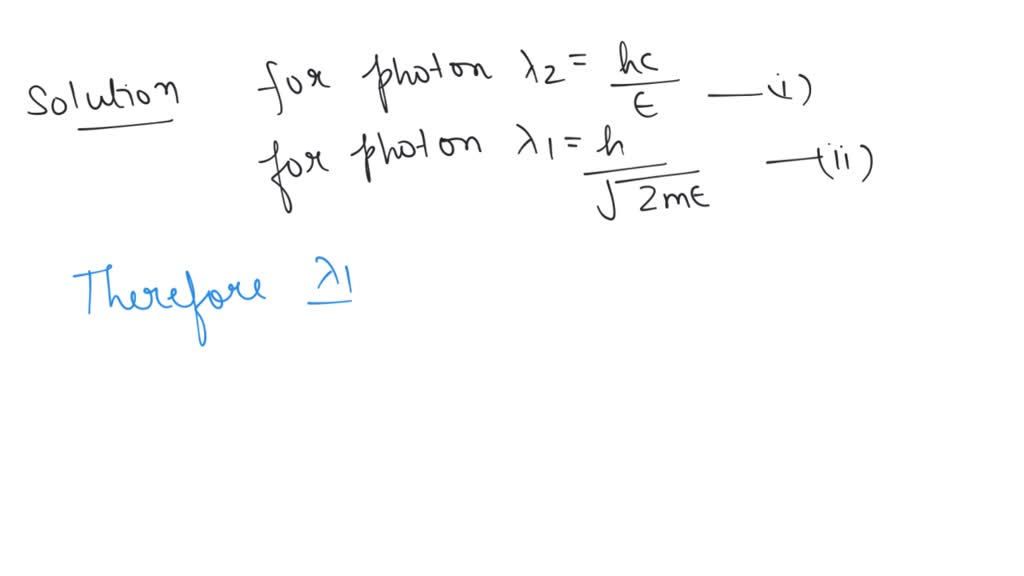 Solution for photon λ2 = hc/E —(i)
for photon λ1 = h/√2mE —(ii)
Therefore λ1